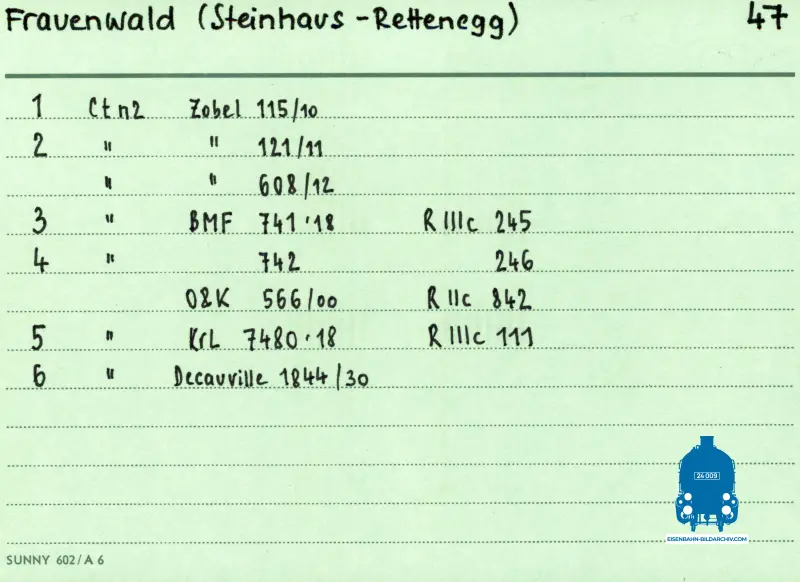 Frauenwald (Steinhaus - Rettenegg) 47
1 Ct n2 Zobel 115/10
2 " " 121/11
" " 608/12
3 " BMF 741 '18 R IIIc 245
4 " 742 246
O&K 566/00 R IIc 842
5 " KrL 7480 '18 R IIIc 111
6 " Decauville 1844/30
24 009
EISENBAHN-BILDARCHIV.COM
SUNNY 602/A 6